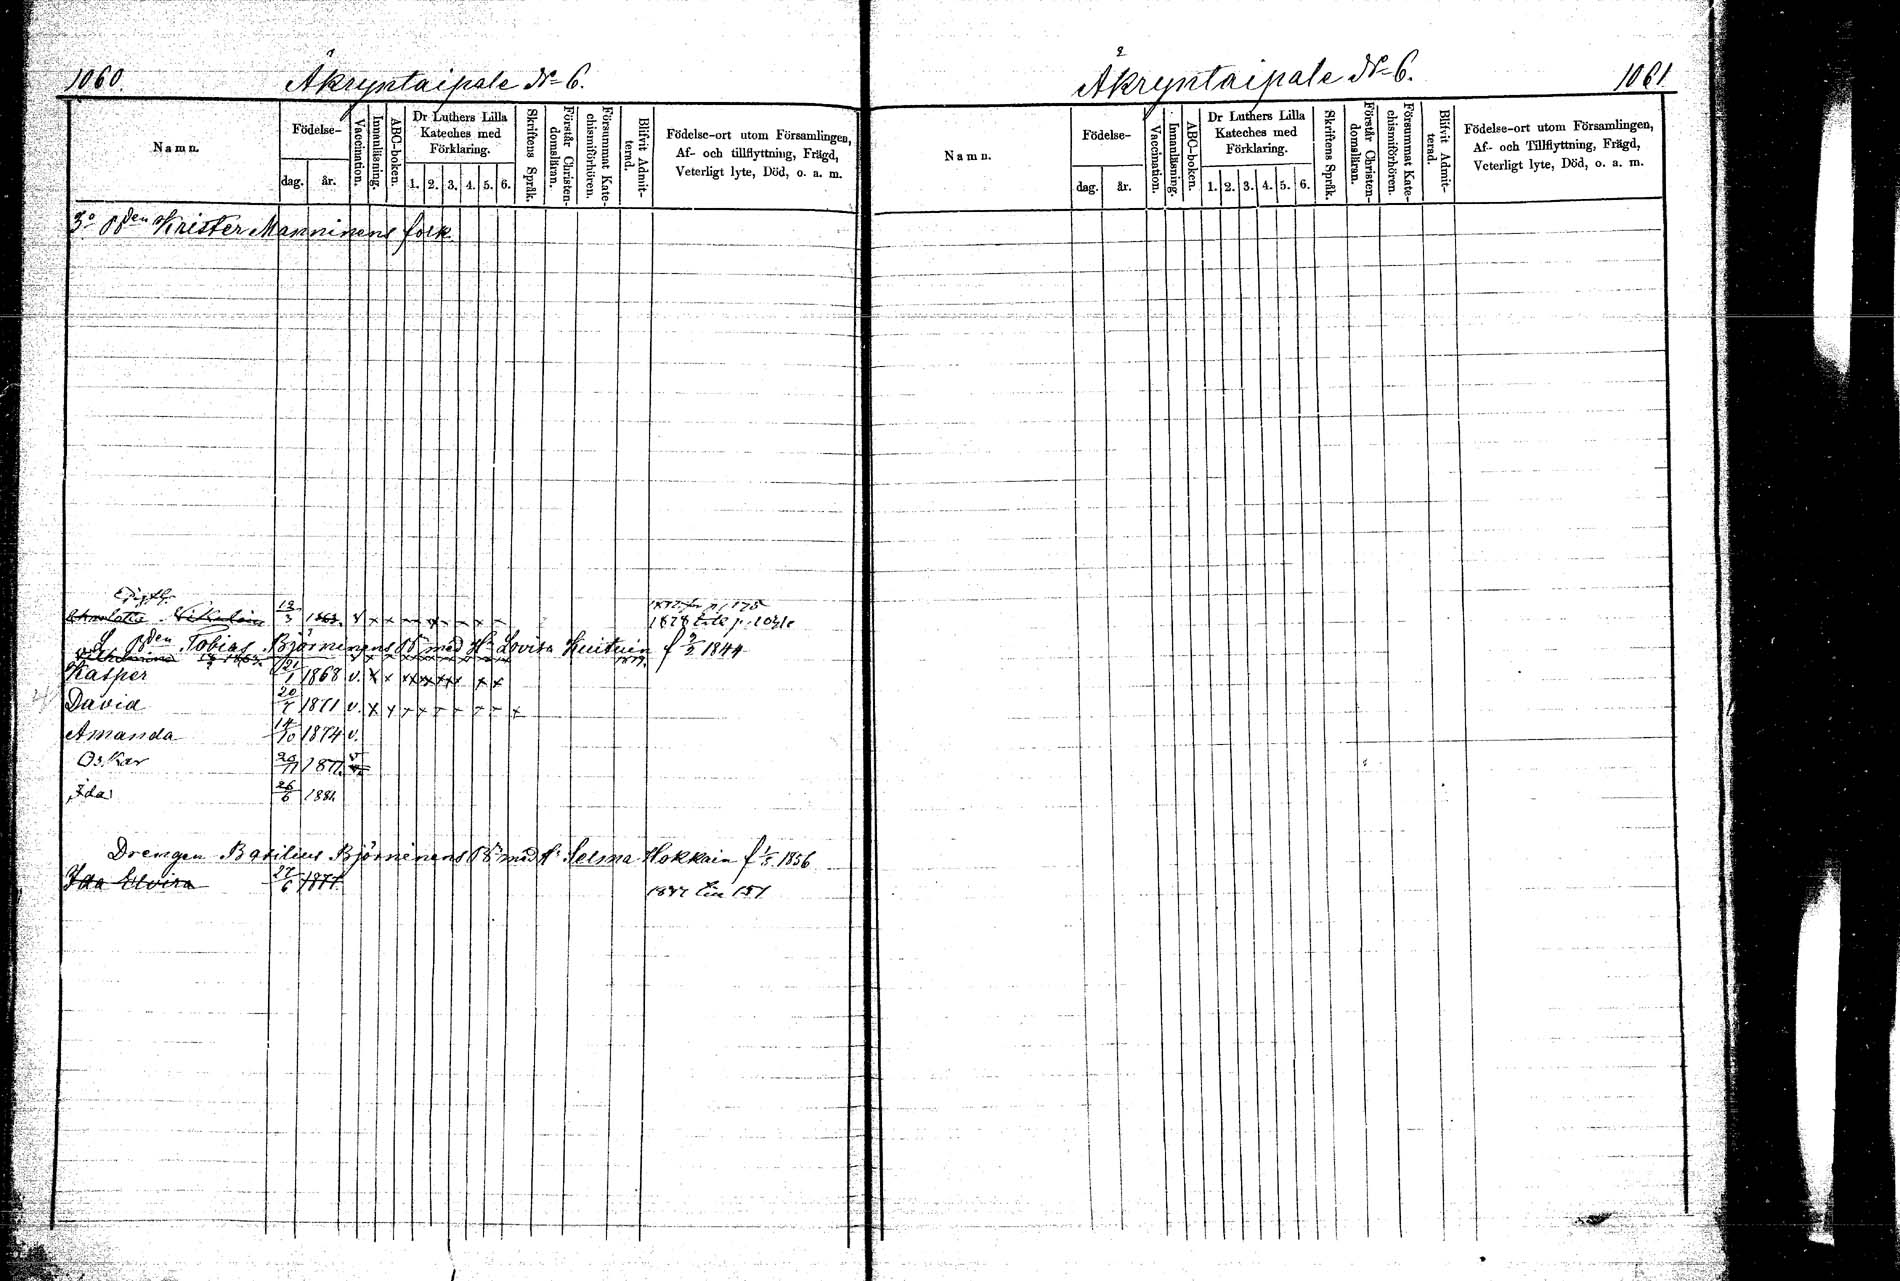 1060 Åkryntaipale № 6.
Namn.
Födelse-
dag. år.
Vaccination.
Innanläsning.
ABC-boken.
Dr Luthers Lilla
Kateches med
Förklaring.
1. 2. 3. 4. 5. 6.
Skriftens Språk.
Förstår Christen-
domsläran.
Försummat Kate-
chismiförhören.
Blifvit Admit-
terad.
Födelse-ort utom Församlingen,
Af- och tillflyttning, Frägd,
Veterligt lyte, Död, o. a. m.
3:o Bden Krister Manninens folk
13/3 1863. v x x
1878
L Bden Tobias Björninens B med Hu Lovisa Kuituin f 9/2 1844
Vilhelmina 1879.
Kasper 12/1 1868 v. x x x x x x x x
David 20/7 1871 v. x x
Amanda 14/10 1874 v.
Oskar 29/11 1877. v
Ida 26/6 1881.
Drengen Basilius Björninens B med H: Selma Hokkain f 1/5 1856
Ida Elvira 27/6 1877.
1061 Åkryntaipale № 6.
Namn.
Födelse-
dag. år.
Vaccination.
Innanläsning.
ABC-boken.
Dr Luthers Lilla
Kateches med
Förklaring.
1. 2. 3. 4. 5. 6.
Skriftens Språk.
Förstår Christen-
domsläran.
Försummat Kate-
chismiförhören.
Blifvit Admit-
terad.
Födelse-ort utom Församlingen,
Af- och Tillflyttning, Frägd,
Veterligt lyte, Död, o. a. m.